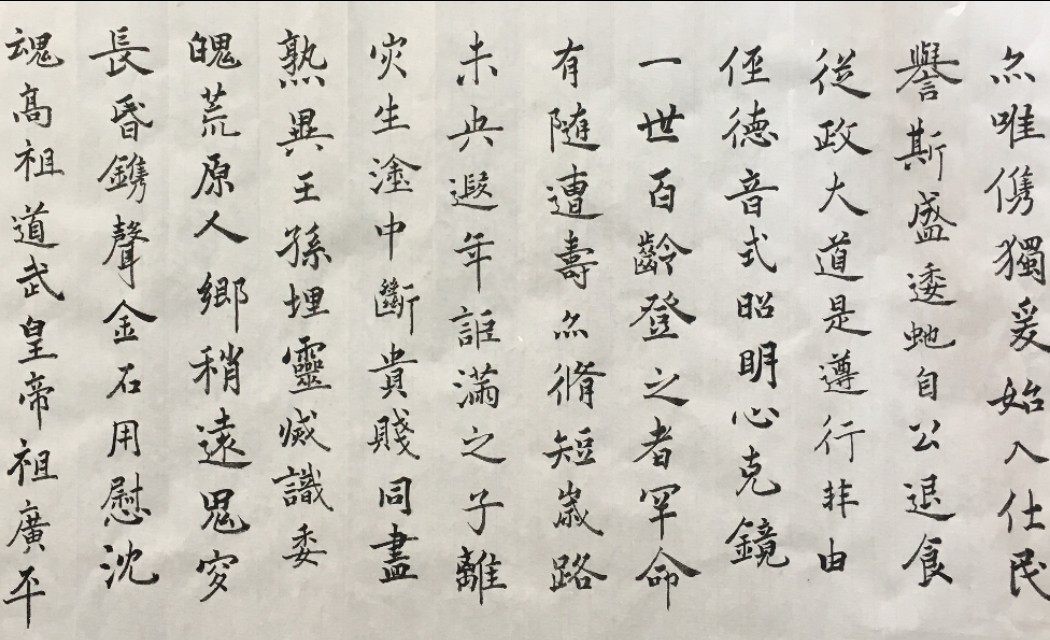 亦唯儁獨爰始入仕民
譽斯盛逶虵自公退食
從政大道是遵行非由
徑德音式昭明心克鏡
一世百齡登之者罕命
有隨遭壽亦脩短嵗路
未央遐年詎滿之子離
灾生塗中斷貴賤同盡
熟異王孫埋靈滅識委
魄荒原人鄉稍遠鬼穸
長昏鐫聲金石用慰沈
魂高祖道武皇帝祖廣平